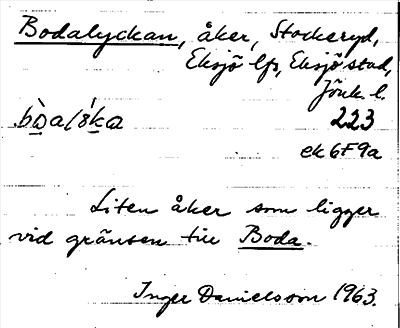 Bodalyckan, åker, Stockeryd,
Eksjö lfs, Eksjö stad,
Jönk. l.
223
ek 6F9a
Liten åker som ligger
vid gränsen till Boda.
Inger Danielsson 1963.